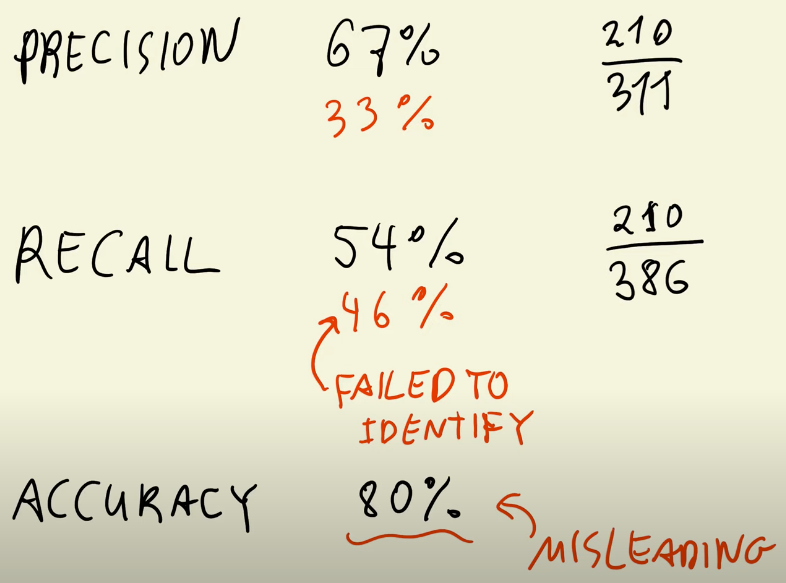 PRECISION 67% 210
311
33%
RECALL 54% 210
386
46%
FAILED TO
IDENTIFY
ACCURACY 80%
MISLEADING